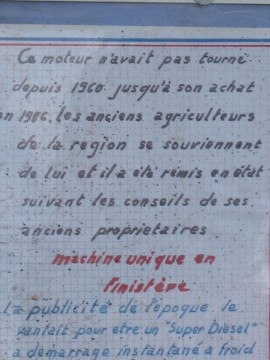 Ce moteur n'avait pas tourné
depuis 1960 jusqu'à son achat
en 1986, les anciens agriculteurs
de la region se souviennent
de lui et il a été remis en état
suivant les conseils de ses
anciens proprietaires
machine unique en
Finistère
La publicité de l'époque le
vantait pour etre un "Super Diesel"
a demarrage instantané a froid